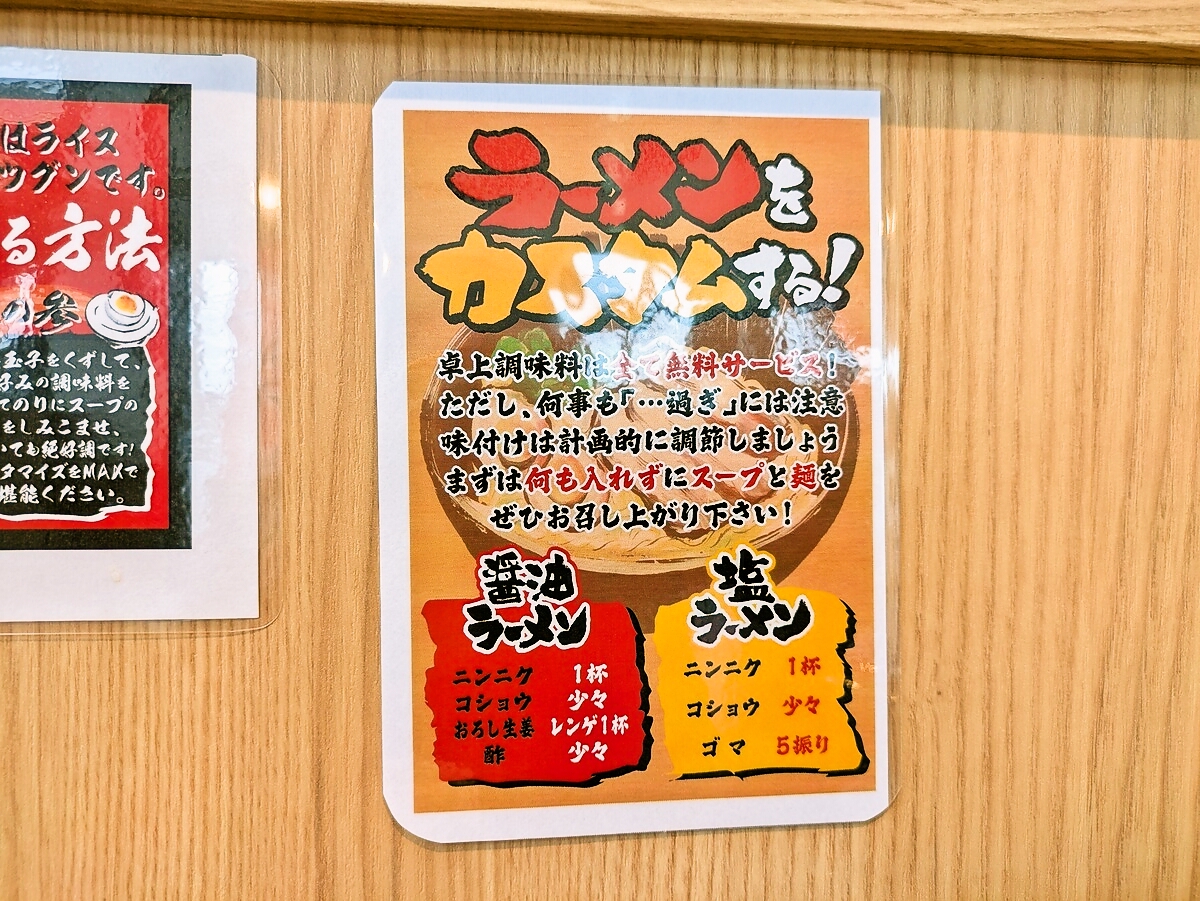 はライス
ツグンです。
る方法
の参
玉子をくずして、
子みの調味料を
てのりにスープの
をしみこませ、
いても絶好調です!
タマイズをMAXで
堪能ください。
ラーメンを
カスタムする!
卓上調味料は全て無料サービス!
ただし、何事も「…過ぎ」には注意
味付けは計画的に調節しましょう
まずは何も入れずにスープと麺を
ぜひお召し上がり下さい!
醤油
ラーメン
ニンニク 1杯
コショウ 少々
おろし生姜 レンゲ1杯
酢 少々
塩
ラーメン
ニンニク 1杯
コショウ 少々
ゴマ 5振り